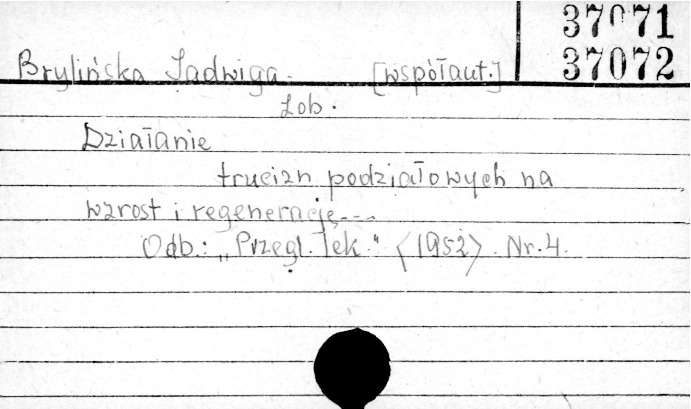 37071
37072
Brylińska Jadwiga. [współaut.]
Lob.
Działanie
trucizn podziałowych na
wzrost i regenerację---
Odb.: „Przegl. lek.” <1952> Nr. 4.